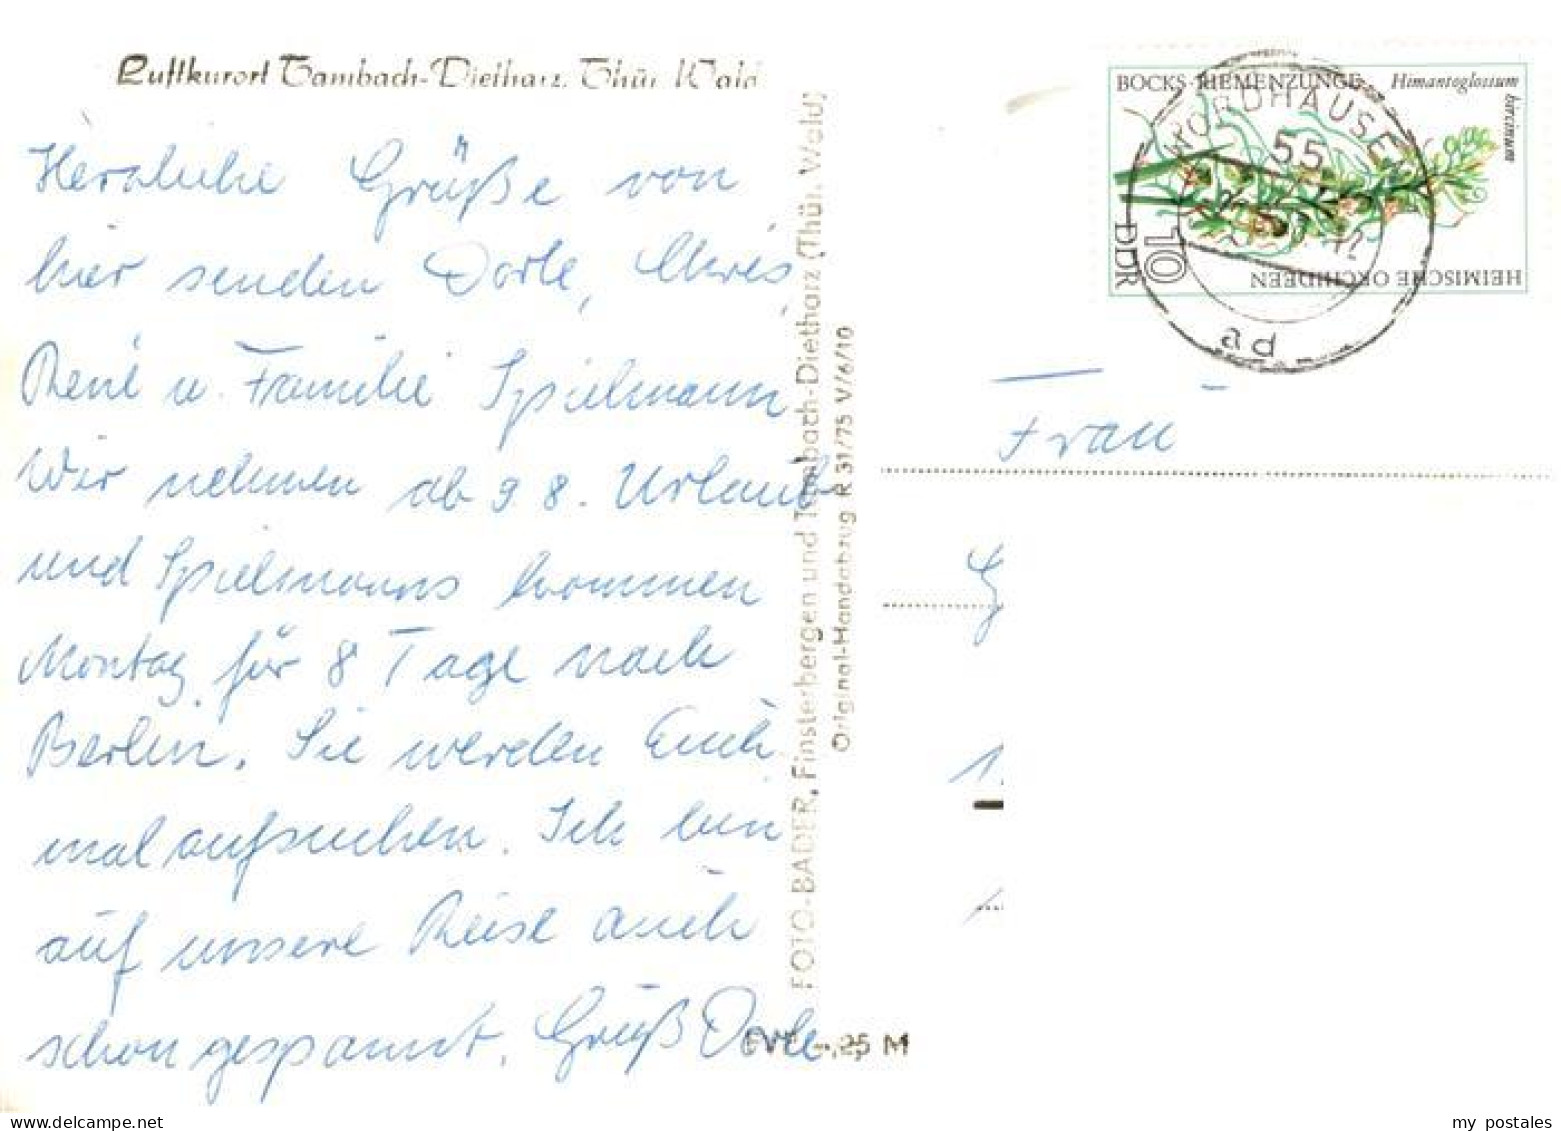 Luftkurort Tambach-Dietharz, Thür. Wald
Herzliche Grüße von
hier senden Dorle, Chris,
René u. Familie Spielmann
Wir nehmen ab 9 8. Urlaub
und Spielmanns kommen
Montag für 8 Tage nach
Berlin. Sie werden Euch
mal aufsuchen. Ich bin
auf unsere Reise auch
schon gespannt. Gruß Dorle
FOTO-BADER, Finsterbergen und Tambach-Dietharz (Thür. Wald)
Original-Handabzug R 31/75 V/6/10
EVP -,25 M
BOCKS-RIEMENZUNGE Himantoglossum
hircinum
HEIMISCHE ORCHIDEEN
10
DDR
NORDHAUSEN
55
12
ad
Frau
G
1.
my postales